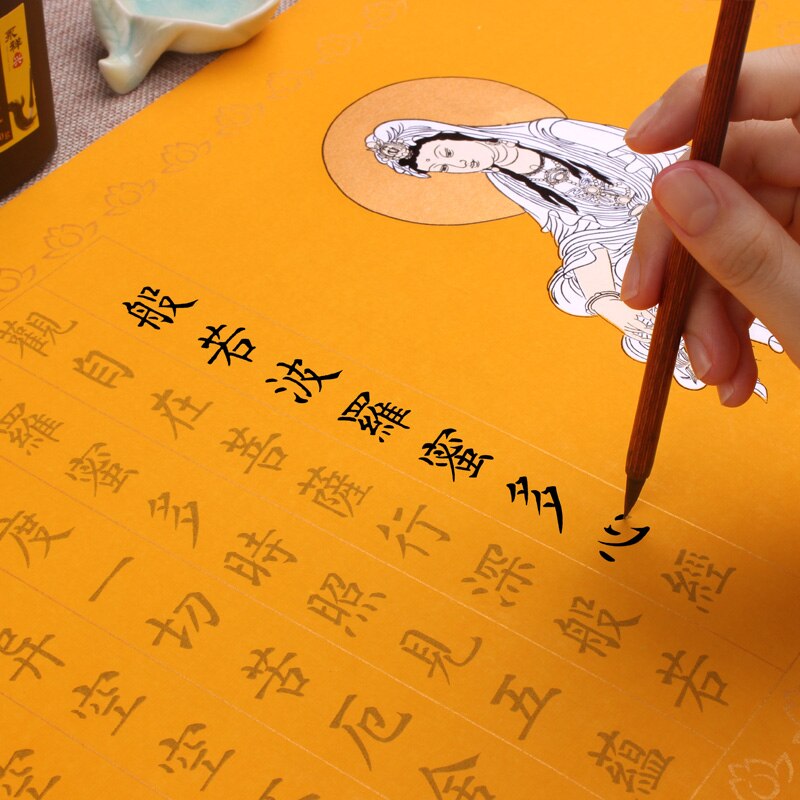 般若波羅蜜多心經
觀自在菩薩行深般若
羅蜜多時照見五蘊
度一切苦厄舍
异空空
空